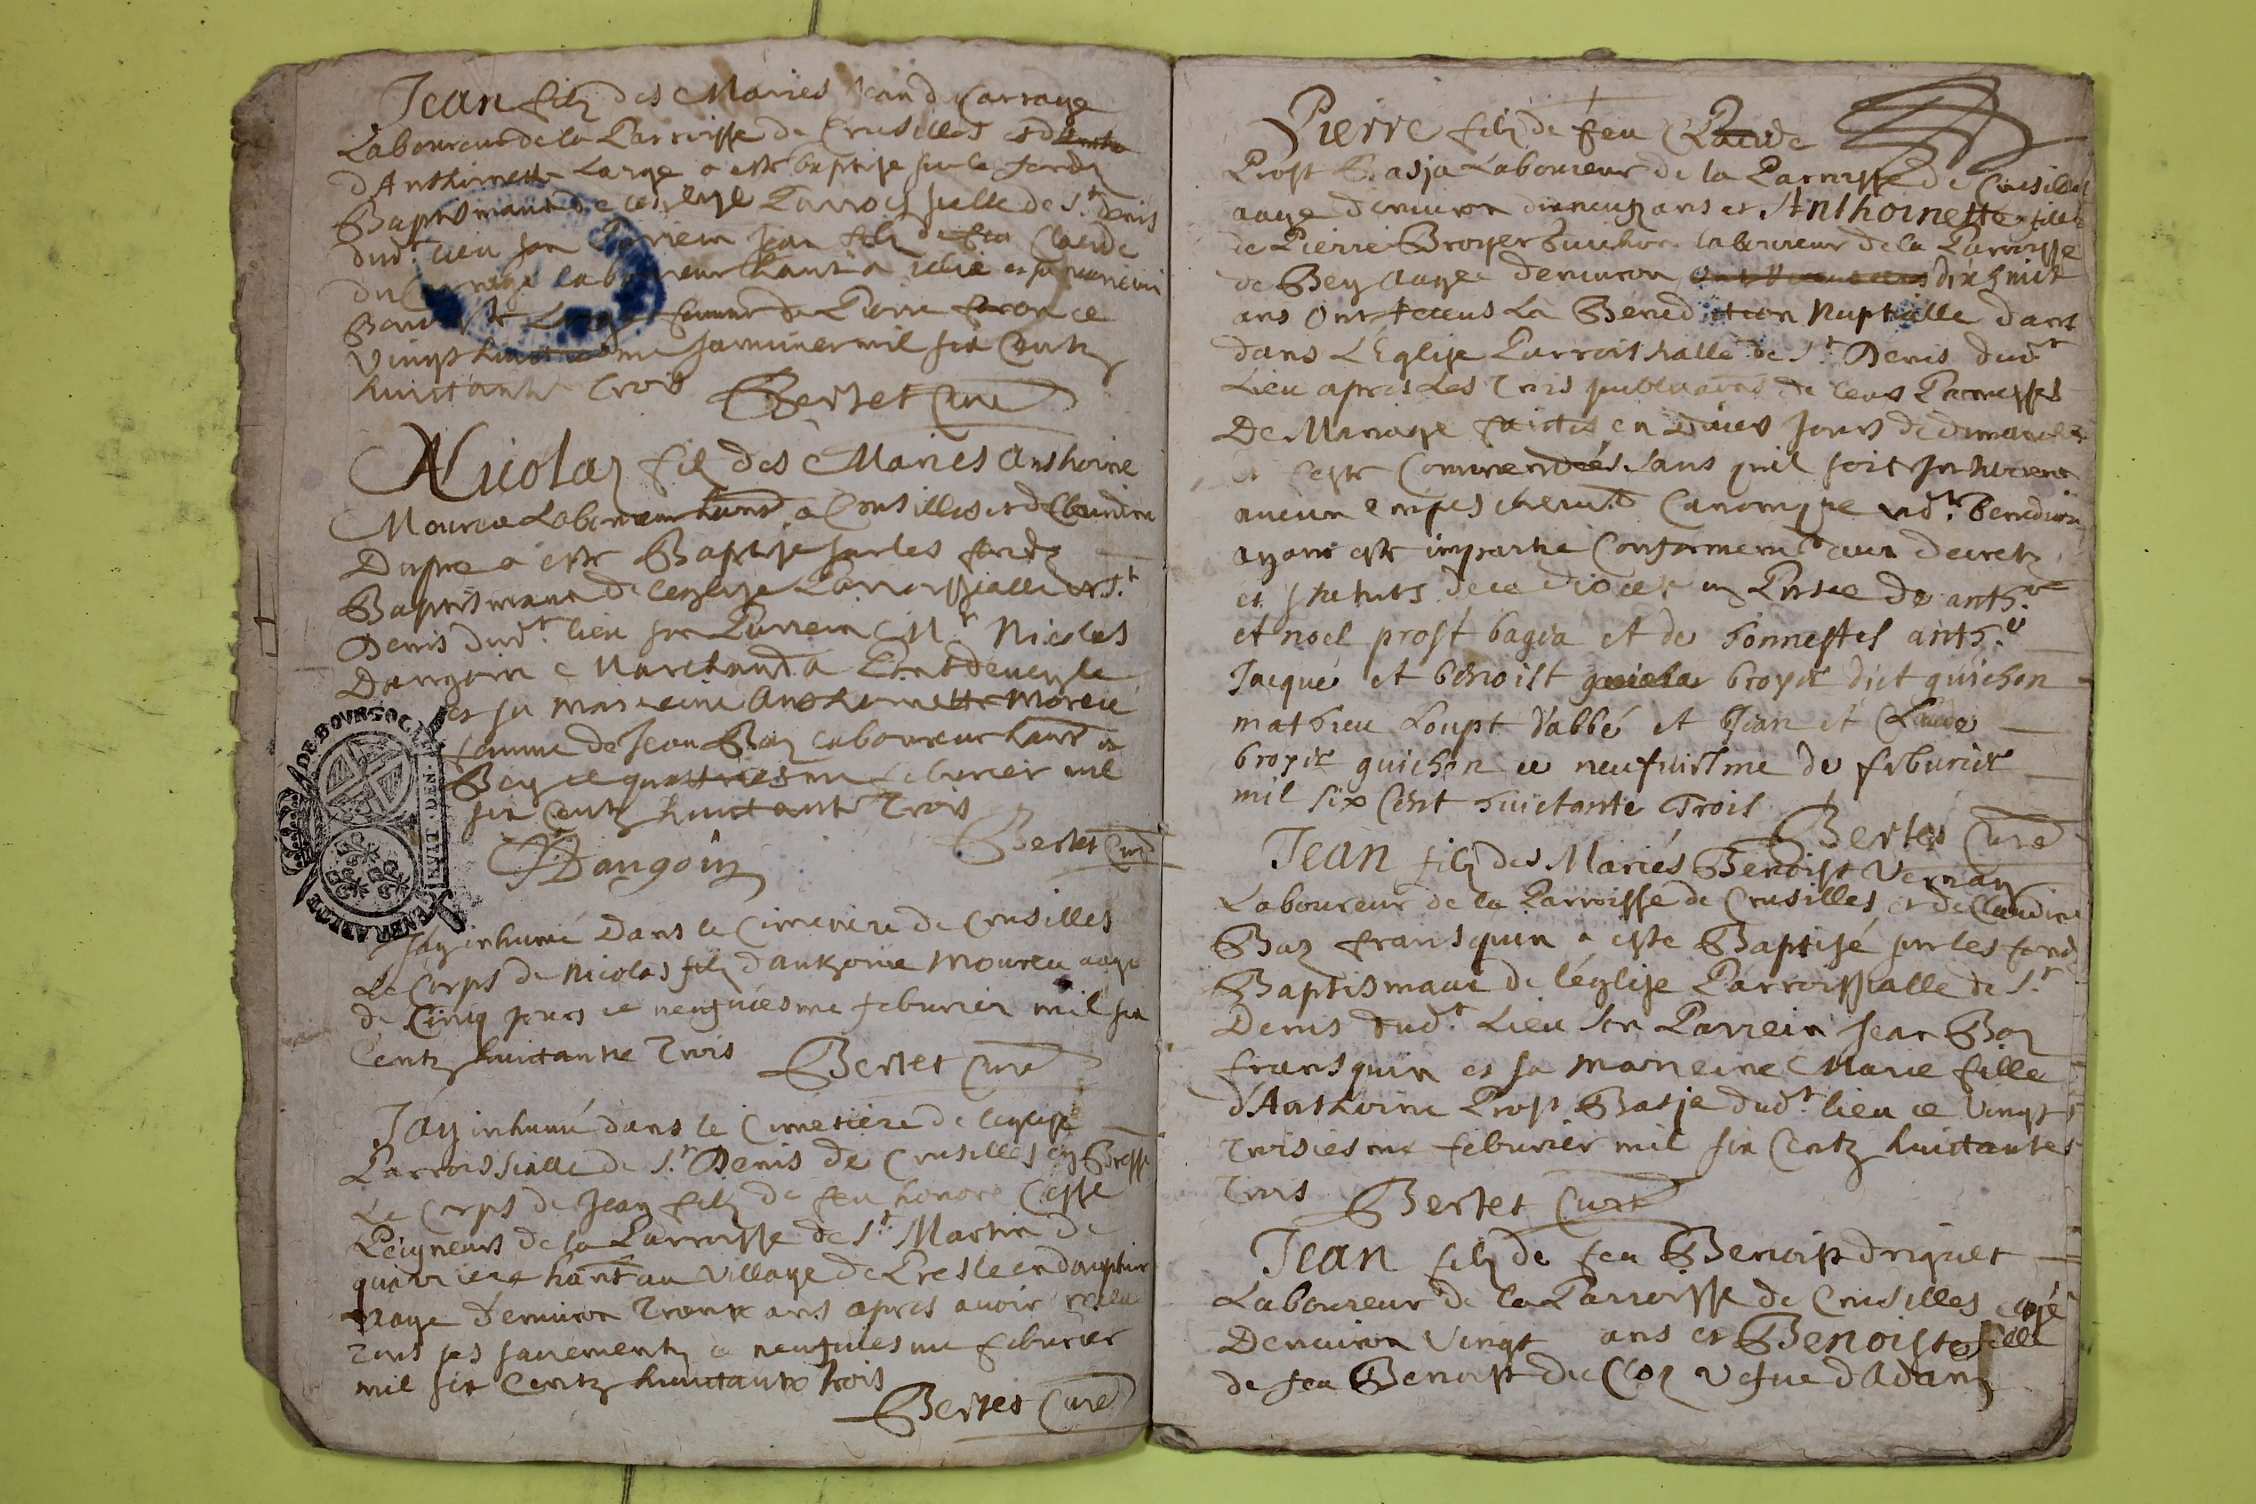 Jean filz des Mariés Jean du Carrage
Laboureur de la Parroisse de Crusilles et d
d'Anthoinette Large a este baptise sur le fondz
Baptismaux de leglise Parroissialle de St Denis
dud.t lieu son Parrein Jean filz de feu Claude
du Carrage laboureur hant a
femme de Pierre ce
Vingt huictiesme Janvier mil six Centz
huictante trois Bertet Curé
Nicolaz filz des Mariés Anthoine
Moureu Laboureur hant a Crusilles et de Claudine
Dupre a este Baptise sur les fondz
Baptismaux de leglise Parroissialle de St
Denis dud.t lieu son Parrein Mr Nicolas
Dangoin Marchand a Pontdeveyle
et sa Marreine Anthoinette Moreu
femme de Jean Baz laboureur hant a
Bey ce quattriesme feburier mil
six Centz huictante Trois
Dangoin Bertet Curé
DE BOVRGOG GENERALITE
Jay inhumé Dans le Cimetiere de Crusilles
Le Corps de Nicolas filz d'anthoine Moureu aage
de Cinq jours ce neufuiesme feburier mil six
Centz huictante Trois Bertet Curé
Jay inhumé dans le Cimetiere de leglise
Parroissialle de St Denis de Crusilles en Bresse
Le Corps de Jean filz de feu honoré Cesse
Peigneurs de la Parroisse de St Martin de
hant au Village de Presle en dauphine
aage d'environ Trente ans apres avoir receu
Tous ses sacrementz ce neufuiesme feburier
mil six Centz huictante trois
Bertet Curé
Pierre filz de feu Claude
Prost Basja Laboureur de la Parroisse de Crusilles
aage denviron dixneufz ans et Anthoinette fille
de Pierre Broyer Guichon laboureur de la Parroisse
de Bey aagee denviron dix huict
ans Ont receus La Benediction Nuptialle dans
dans L'Eglise Parroissialle de St Denis dud.t
Lieu apres Les Trois publications de leurs Promesses
De Mariage faictes en Divers Jours de dimanche
et feste Commendées sans quil soit Intervenu
aucun empeschem.t Canonique lad.te Benediction
ayant este impartie Conformement aux decretz
et statuts de ce diocese en Presence de anth.e
et noel prost bagia et de honnestes anth.e
Jacque et benoist broyer dict guichon
mathieu Loupt d'abbé et Jean et Claude
broyer guichon ce neufuiesme de feburier
mil six Cent huictante Trois
Bertet Curé
Jean filz des Mariés Benoist Vernay
Laboureur de la Parroisse de Crusilles et de Claudine
Baz fransquin a este Baptisé sur les fondz
Baptismaux de l'église Parroissialle de St
Denis dud.t Lieu son Parrein Jean Baz
fransquin et sa Marreine Marie fille
d'Anthoine Prost Basje dud.t lieu ce Vingt
Troisiesme feburier mil six Centz huictante
Trois Bertet Curé
Jean filz de feu Benoist driguet
Laboureur de la Parroisse de Crusilles agé
Denviron Vingt ans et Benoiste fille
de feu Benoist du Cloz Vefue d'Adam